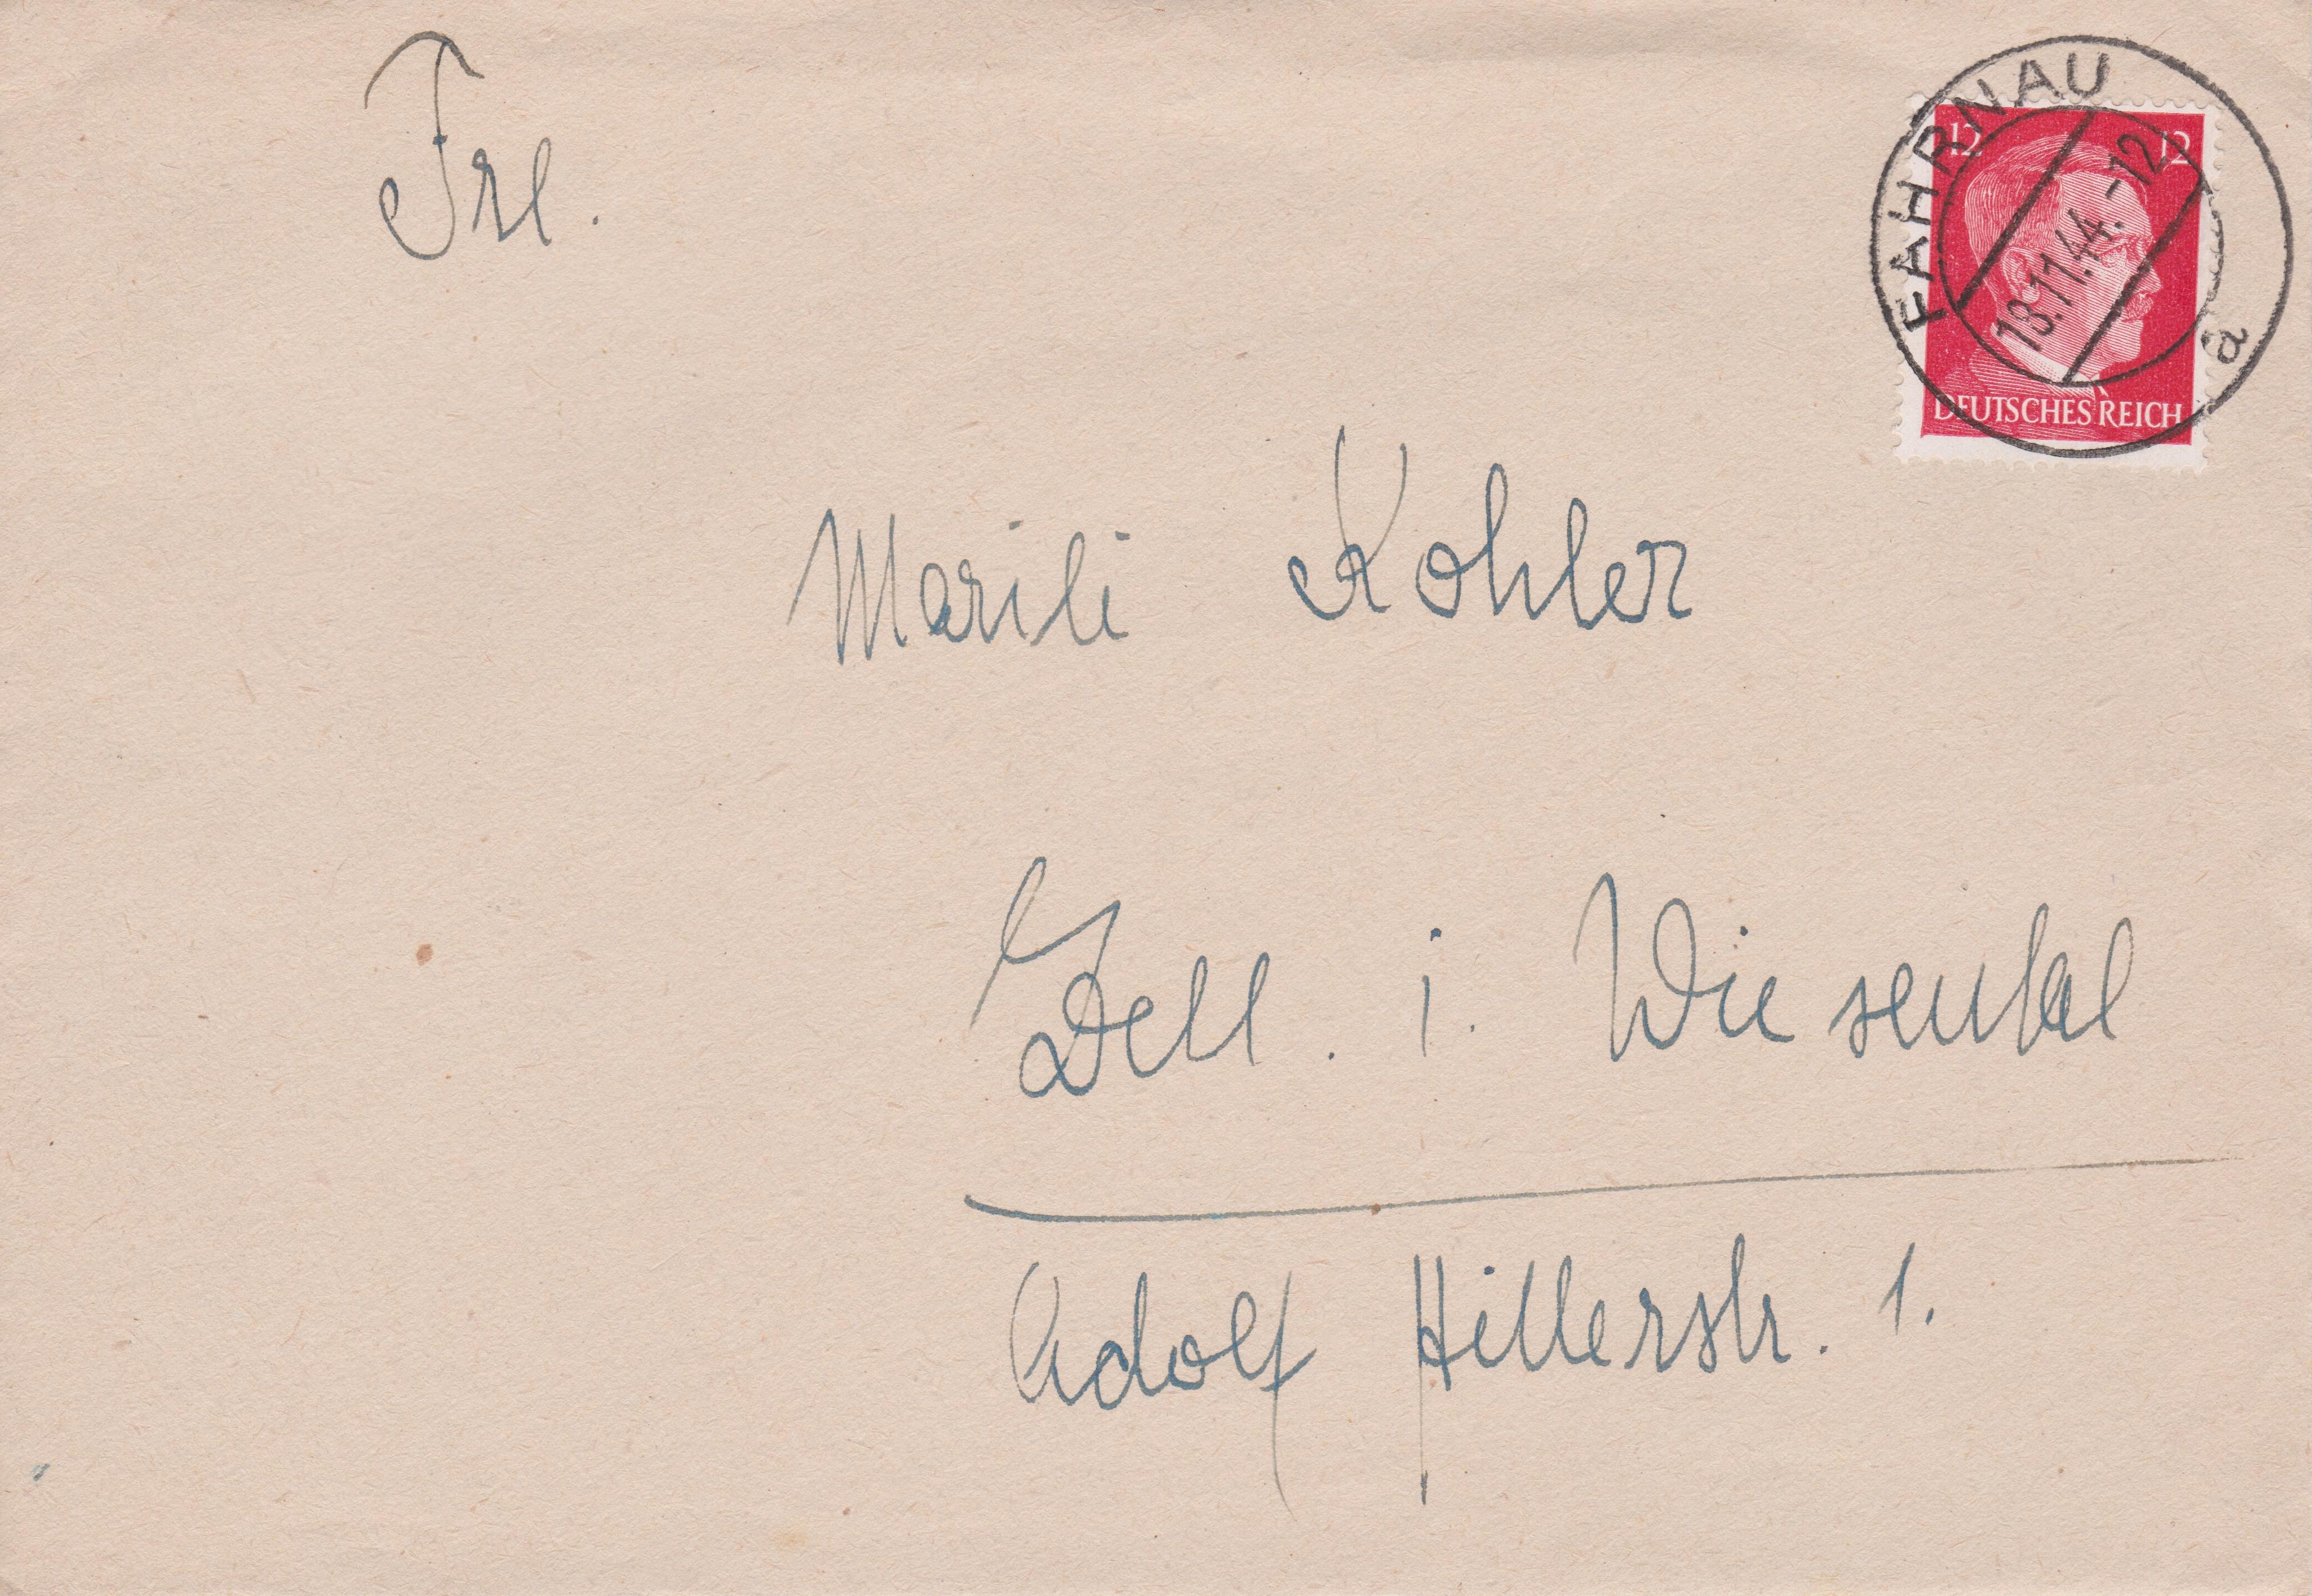 FAHRNAU
12 12
18.11.44.-12
a
DEUTSCHES REICH
Frl.
Marili Kohler
Zell. i. Wiesental
Adolf Hitlerstr. 1.